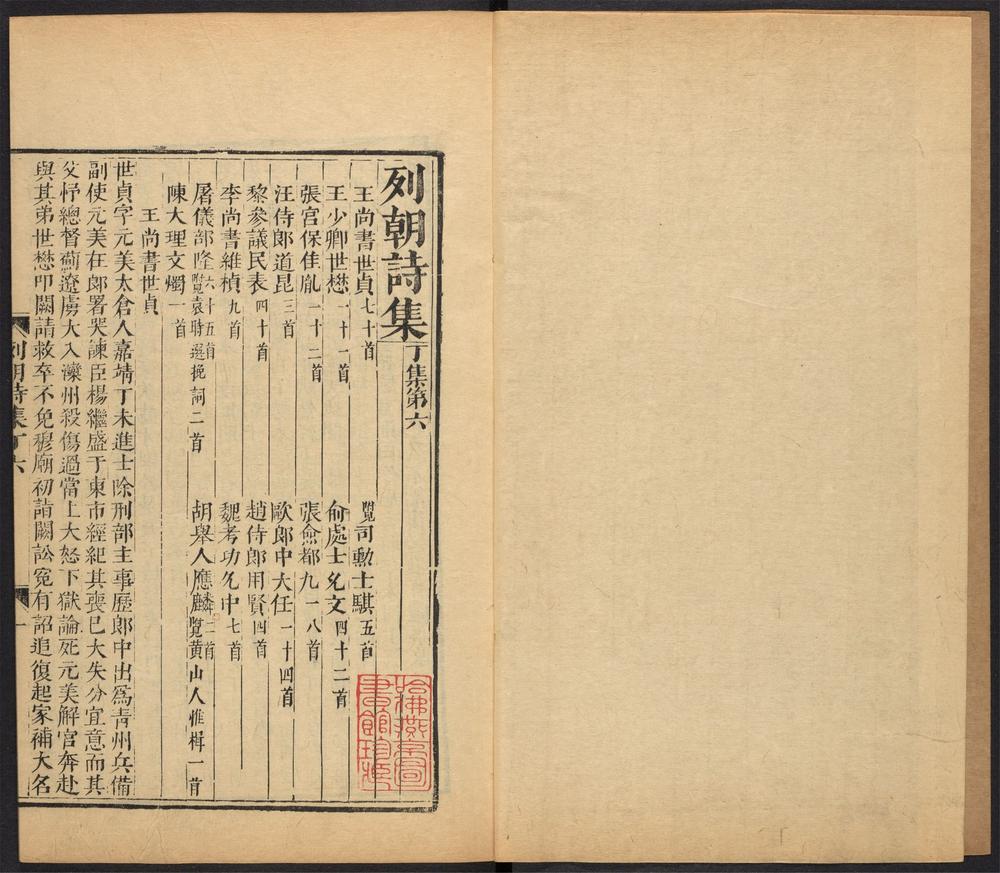 列朝詩集丁集第六
王尚書世貞七十首
覽司勳士騏五首
王少卿世懋一十一首
俞處士允文四十二首
張宮保佳胤一十二首
張僉都九一八首
汪侍郎道昆三首
歐郎中大任一十四首
黎參議民表四十首
趙侍郎用賢四首
李尚書維楨九首
魏考功允中七首
屠儀部隆六十五首
附見袁時選挽詞二首
胡舉人應麟二首
附見黃山人惟楫一首
陳大理文燭一首
王尚書世貞
世貞字元美太倉人嘉靖丁未進士除刑部主事歷郎中出為青州兵備
副使元美在郎署哭諫臣楊繼盛于東市經紀其喪已大失分宜意而其
父忬總督薊遼虜大入灤州殺傷過當上大怒下獄論死元美解官奔赴
與其弟世懋叩闕請救卒不免穆廟初請闕訟冤有詔追復起家補大名
列朝詩集丁六
一
哈佛燕京圖書館珍藏